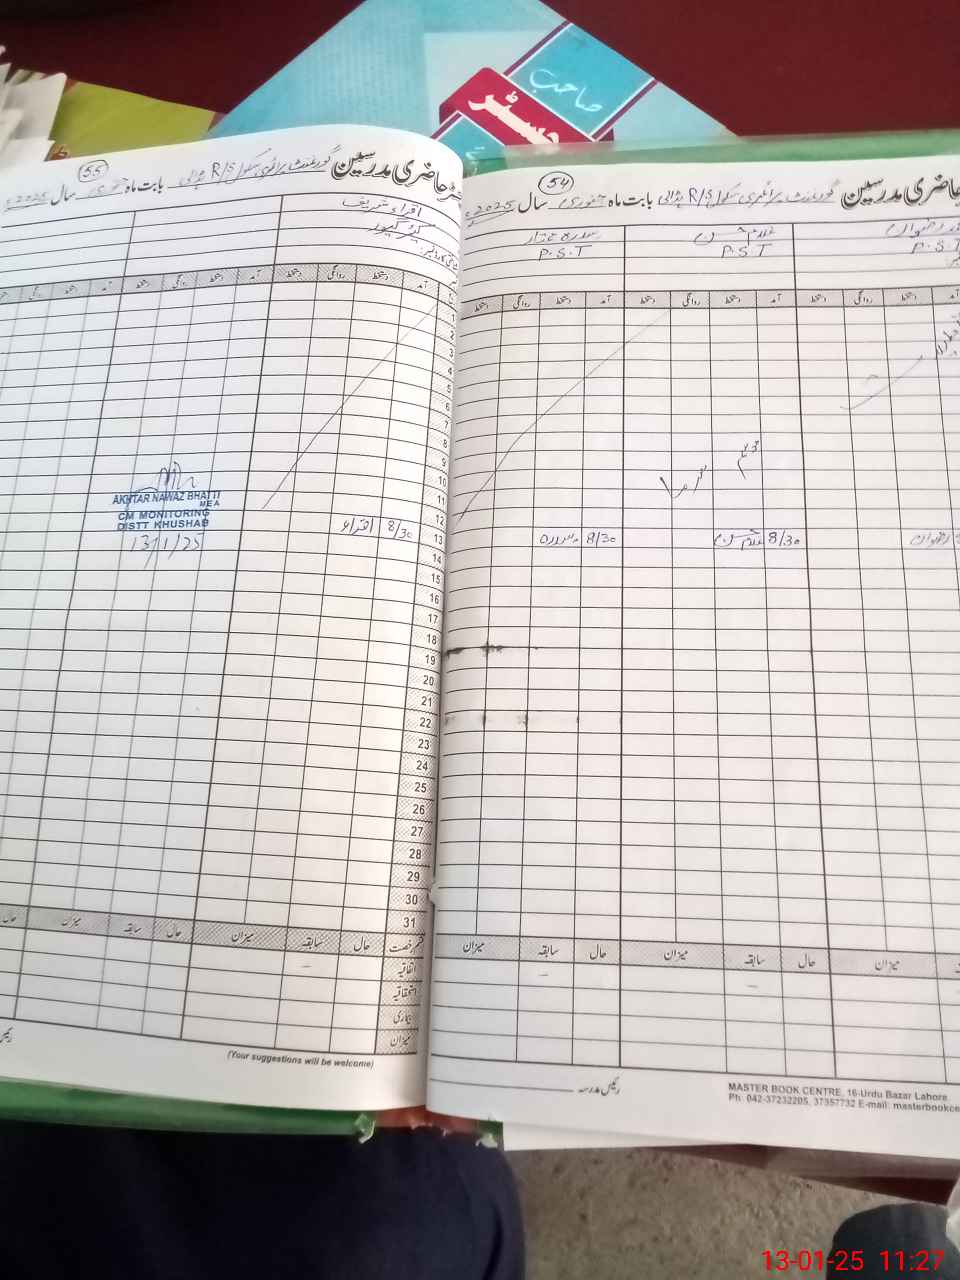 صاحب
جسٹر
54
حاضری مدرسین گورنمنٹ پرائمری سکول R/S بڈالی بابت ماہ جنوری سال 2025ء
رضوان
غلام حسن
سدرہ مختار
P.S.T
P.S.T
P.S.T
آمد دستخط روانگی دستخط آمد دستخط روانگی دستخط آمد دستخط روانگی دستخط
موسم سرما
رضوان
8/30 غلام حسن
8/30 سدرہ
میزان حال سابقہ میزان حال سابقہ میزان
رئیس مدرسہ
MASTER BOOK CENTRE, 16-Urdu Bazar Lahore.
Ph: 042-37232205, 37357732 E-mail: masterbookce
55
حاضری مدرسین گورنمنٹ پرائمری سکول R/S بڈالی بابت ماہ جنوری سال 2025ء
اقراء شریف
کیئر گیور
آمد دستخط روانگی دستخط آمد دستخط روانگی دستخط آمد دستخط روانگی
1
2
3
4
5
6
7
8
9
10
11
12
13 8/30 اقراء
14
15
16
17
18
19
20
21
22
23
24
25
26
27
28
29
30
31
AKHTAR NAWAZ BHATTI
MEA
CM MONITORING
DISTT KHUSHAB
13/1/25
قسم رخصت حال سابقہ میزان حال سابقہ میزان حال
اتفاقیہ
استحقاقیہ
بیماری
میزان
(Your suggestions will be welcome)
13-01-25 11:27